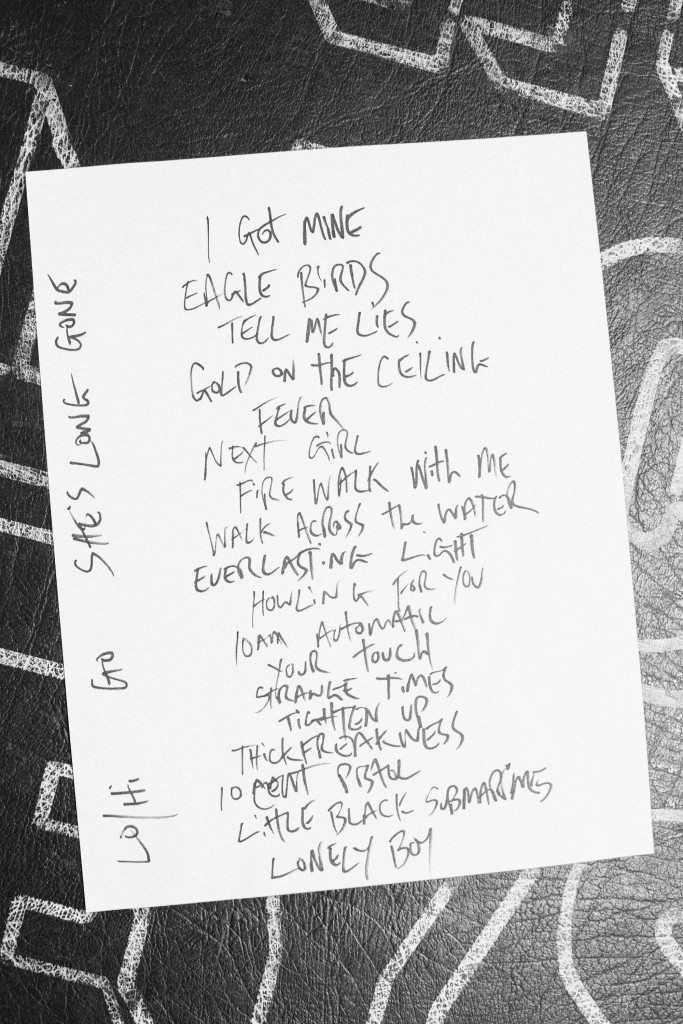 I Got MINE
EAGLE BIRDS
TELL ME LIES
GOLD ON thE CEILING
FEVER
NEXT GIRL
FIRE WALK With ME
WALK ACROSS the WATER
EVERLASTING LIGHT
HOWLING FOR YOU
10AM AUTOMATIC
YOUR TOUCH
STRANGE TIMES
TIGHTEN UP
THICKFREAKNESS
10 CENT PISTOL
LITTLE BLACK SUBMARINES
LONELY BOY
SHE'S LONG GONE
GO
LO/Hi